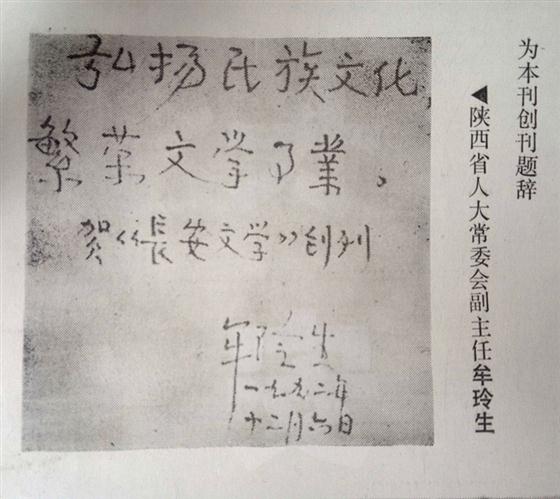 为本刊创刊题辞
◀陕西省人大常委会副主任牟玲生
弘扬民族文化,
繁荣文学事業。
贺《長安文学》创刊
牟玲生
一九九二年
十二月六日